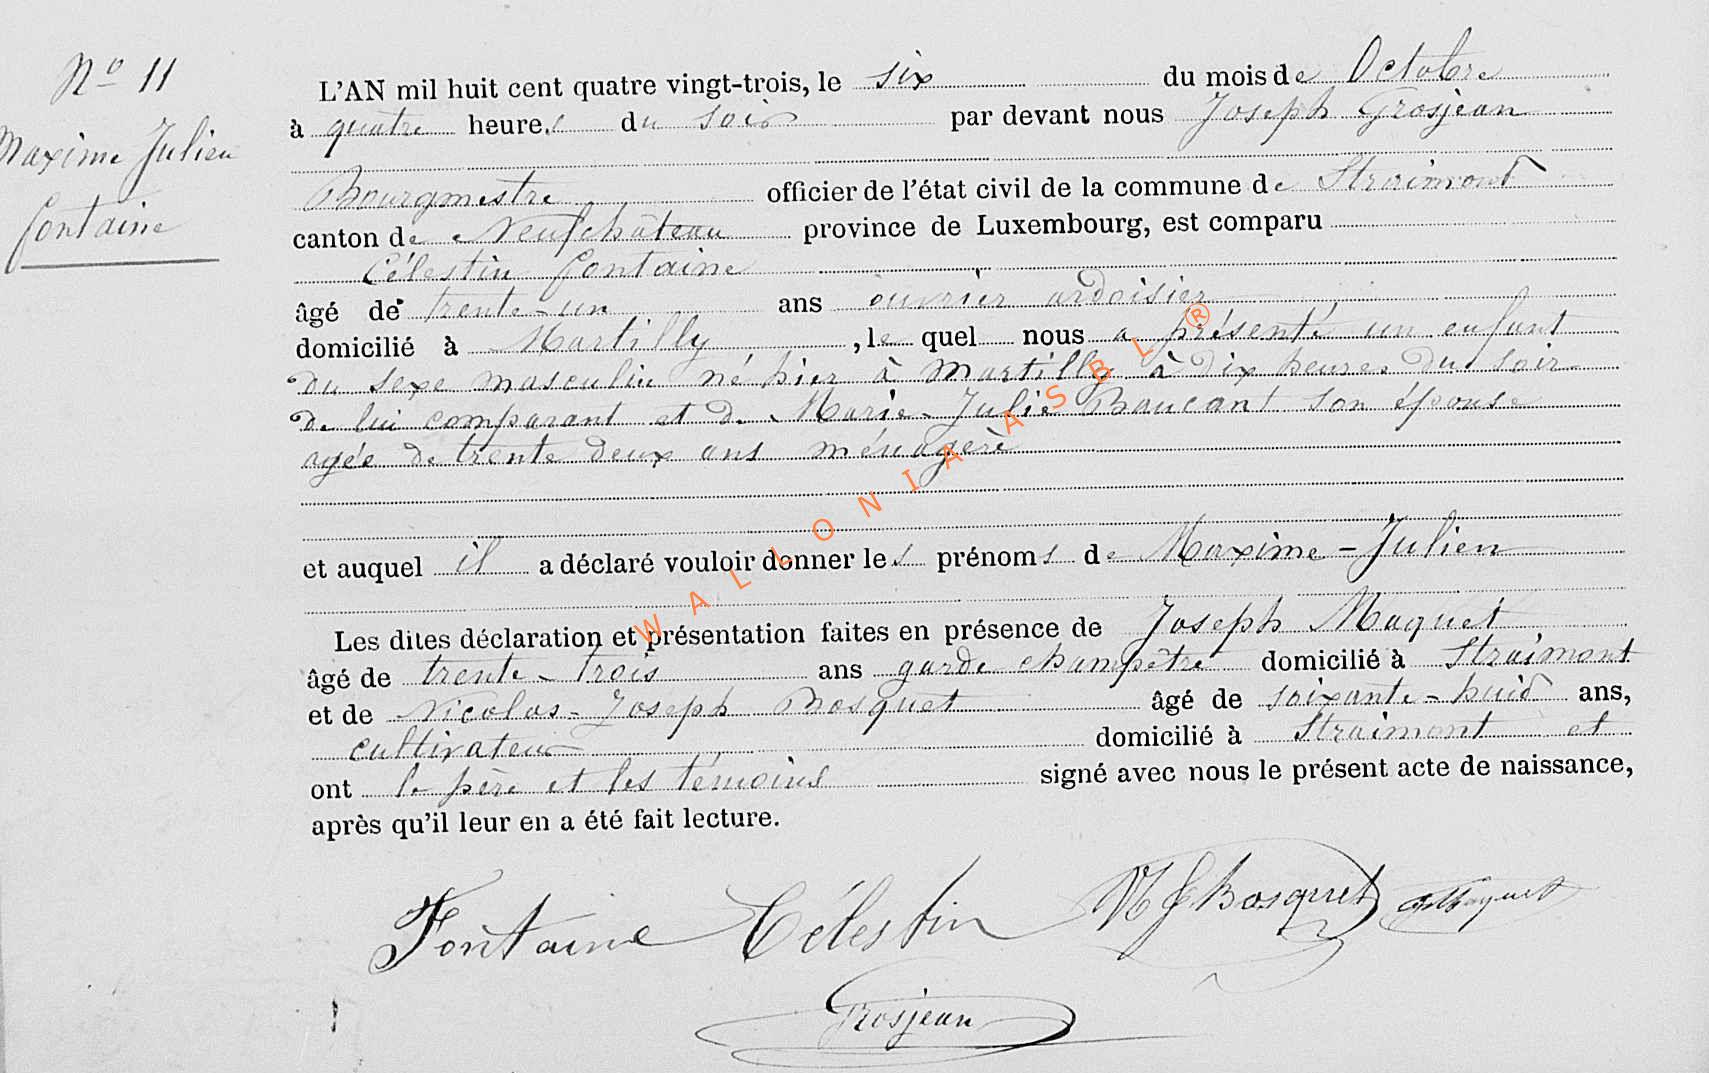 Nº 11
Maxime Julien
Fontaine
L'AN mil huit cent quatre vingt-trois, le six du mois de Octobre
à quatre heures du soir par devant nous Joseph Grosjean
Bourgmestre officier de l'état civil de la commune de Straimont
canton de Neufchâteau province de Luxembourg, est comparu
Célestin Fontaine
âgé de trente-un ans ouvrier ardoisier
domicilié à Martilly, le quel nous a présenté un enfant
du sexe masculin né hier à Martilly à dix heures du soir
de lui comparant et de Marie-Julie Baucant son épouse
agée de trente deux ans ménagère
et auquel il a déclaré vouloir donner les prénoms de Maxime-Julien
Les dites déclaration et présentation faites en présence de Joseph Maquet
âgé de trente-trois ans garde champêtre domicilié à Straimont
et de Nicolas-Joseph Bosquet âgé de soixante-huit ans,
cultivateur domicilié à Straimont et
ont le père et les témoins signé avec nous le présent acte de naissance,
après qu'il leur en a été fait lecture.
Fontaine Célestin NJBosquet JMaquet
Grosjean
WALLONIA ASBL ®